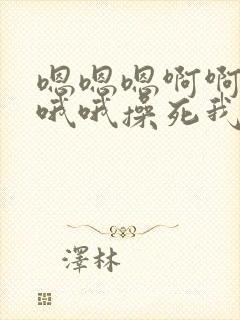 嗯嗯嗯啊啊
哦哦操死我
澤林